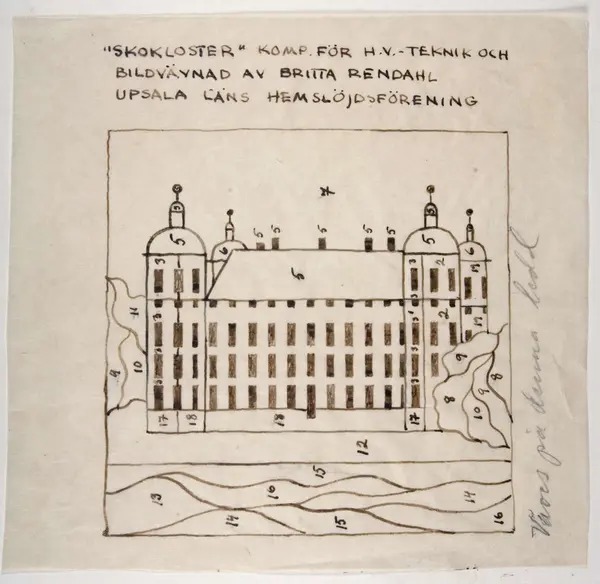 "SKOKLOSTER" KOMP. FÖR H.V.-TEKNIK OCH
BILDVÄVNAD AV BRITTA RENDAHL
UPSALA LÄNS HEMSLÖJDSFÖRENING
7
5 5 5 5 5
5 6 5 5 6
3 3 2 13
11 2 17
9 10 9 8
17 18 18 17 8 10 9
12
15
13 16 14
14 15 16
Vävs på denna ledd